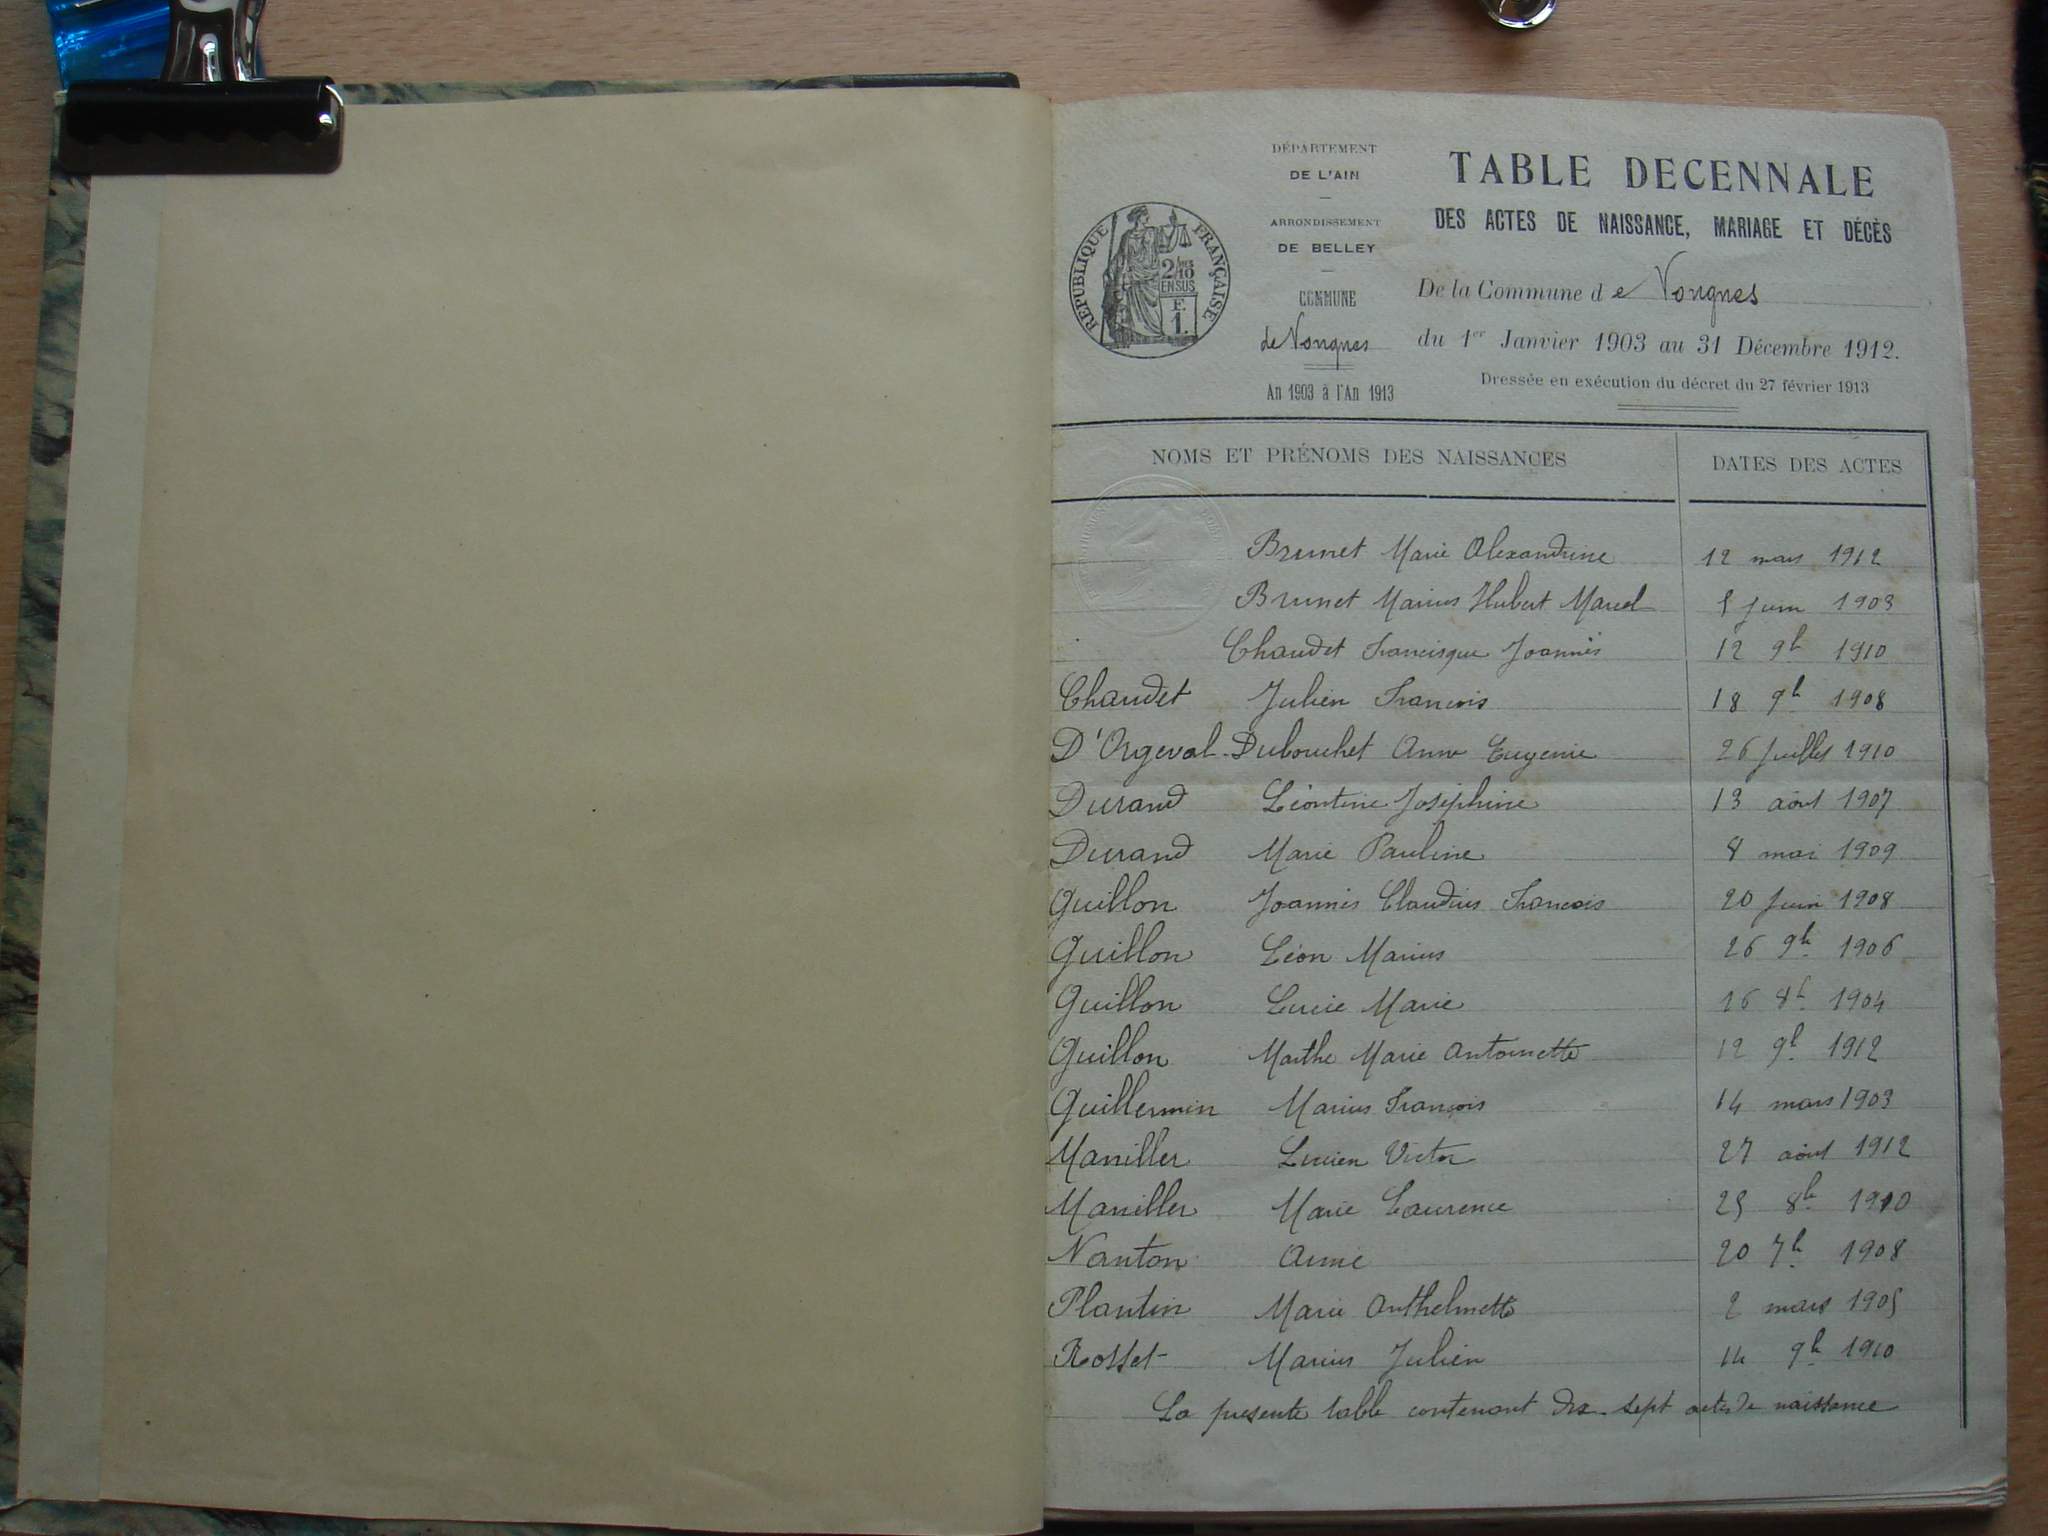 DÉPARTEMENT
DE L'AIN
ARRONDISSEMENT
DE BELLEY
COMMUNE
de Vongnes
An 1903 à l'An 1913
RÉPUBLIQUE FRANÇAISE
2/10
EN SUS
F.
1.
TABLE DECENNALE
DES ACTES DE NAISSANCE, MARIAGE ET DÉCÈS
De la Commune de Vongnes
du 1er Janvier 1903 au 31 Décembre 1912.
Dressée en exécution du décret du 27 février 1913
NOMS ET PRÉNOMS DES NAISSANCES DATES DES ACTES
Brunet Marie Alexandrine 12 mars 1912
Brunet Marius Hubert Marcel juin 1903
Chaudet Francisque Joannès 12 9b 1910
Chaudet Julien Francois 18 9b 1908
D'Orgeval-Dubouchet Anne Eugenie 26 Juillet 1910
Durand Léontine Joséphine 13 août 1907
Durand Marie Pauline 8 mai 1909
Guillon Joannès Claudius Francois 20 Juin 1908
Guillon Léon Marius 26 9b 1906
Guillon Lucie Marie 16 8b 1904
Guillon Marthe Marie Antoinette 12 9b 1912
Guillermin Marius François 14 mars 1903
Maniller Lucien Victor 27 août 1912
Maniller Marie Laurence 25 8b 1910
Nanton 20 7b 1908
Plantin Marie Anthelmette 2 mars 1905
Rosset Marius Julien 14 9b 1910
La présente table contenant dix-sept actes de naissance